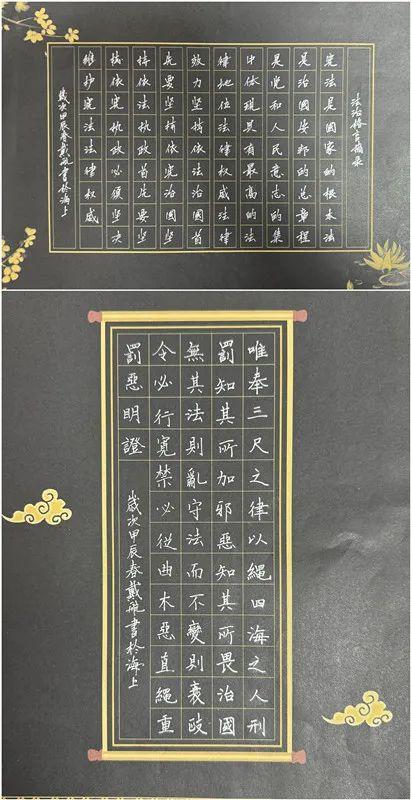 法治格言摘录
宪法是國家的根本法
是治國安邦的总章程
是党和人民意志的集
中体现具有最高的法
律地位法律权威法律
效力坚持依法治國首
先要坚持依宪治國坚
持依法执政首先要坚
持依宪执政必须坚决
维护宪法法律权威
歲次甲辰春戴書於海上
唯奉三尺之律以繩四海之人刑
罰知其所加邪惡知其所畏治國
無其法則亂守法而不變則衰政
令必行憲禁必從曲木惡直繩重
罰惡明證
歲次甲辰春戴書於海上